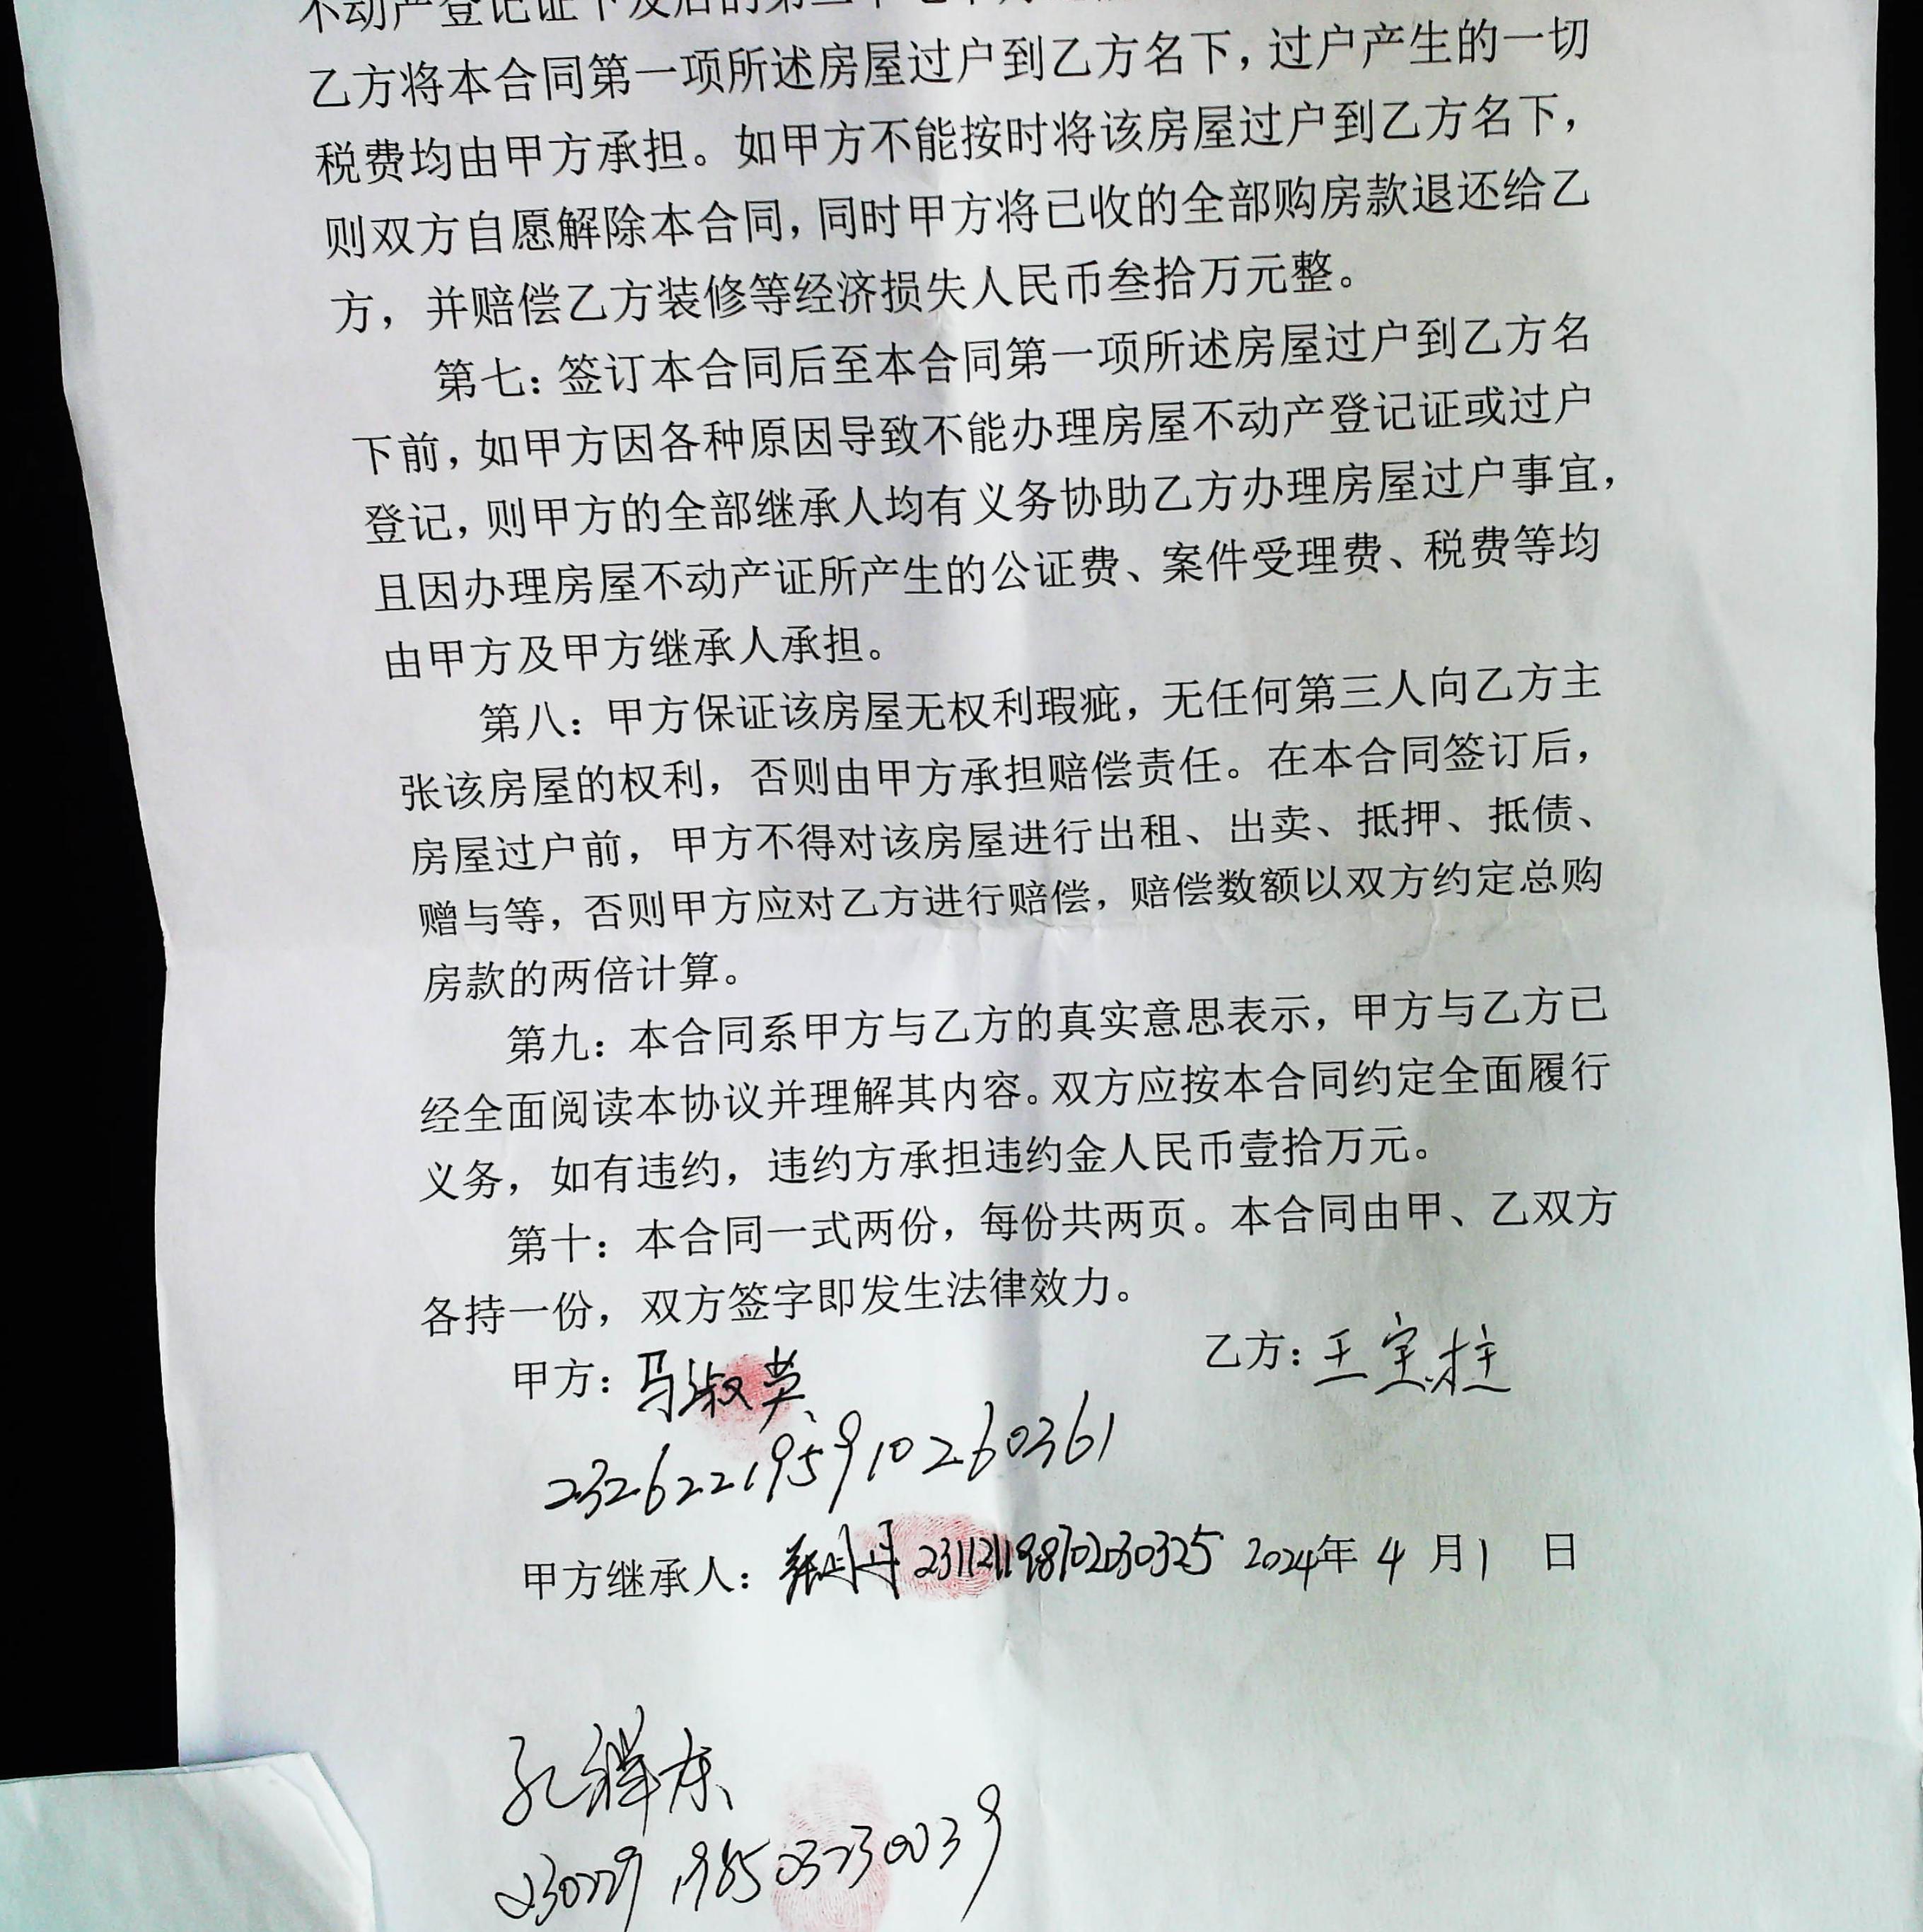 不动产登记证下发后的第
乙方将本合同第一项所述房屋过户到乙方名下，过户产生的一切
税费均由甲方承担。如甲方不能按时将该房屋过户到乙方名下，
则双方自愿解除本合同，同时甲方将已收的全部购房款退还给乙
方，并赔偿乙方装修等经济损失人民币叁拾万元整。
第七：签订本合同后至本合同第一项所述房屋过户到乙方名
下前，如甲方因各种原因导致不能办理房屋不动产登记证或过户
登记，则甲方的全部继承人均有义务协助乙方办理房屋过户事宜，
且因办理房屋不动产证所产生的公证费、案件受理费、税费等均
由甲方及甲方继承人承担。
第八：甲方保证该房屋无权利瑕疵，无任何第三人向乙方主
张该房屋的权利，否则由甲方承担赔偿责任。在本合同签订后，
房屋过户前，甲方不得对该房屋进行出租、出卖、抵押、抵债、
赠与等，否则甲方应对乙方进行赔偿，赔偿数额以双方约定总购
房款的两倍计算。
第九：本合同系甲方与乙方的真实意思表示，甲方与乙方已
经全面阅读本协议并理解其内容。双方应按本合同约定全面履行
义务，如有违约，违约方承担违约金人民币壹拾万元。
第十：本合同一式两份，每份共两页。本合同由甲、乙双方
各持一份，双方签字即发生法律效力。
甲方：马淑英 乙方：王宝柱
232622195910260361
甲方继承人：张丹丹 231121198702030325 2024年4月1日
孔祥东